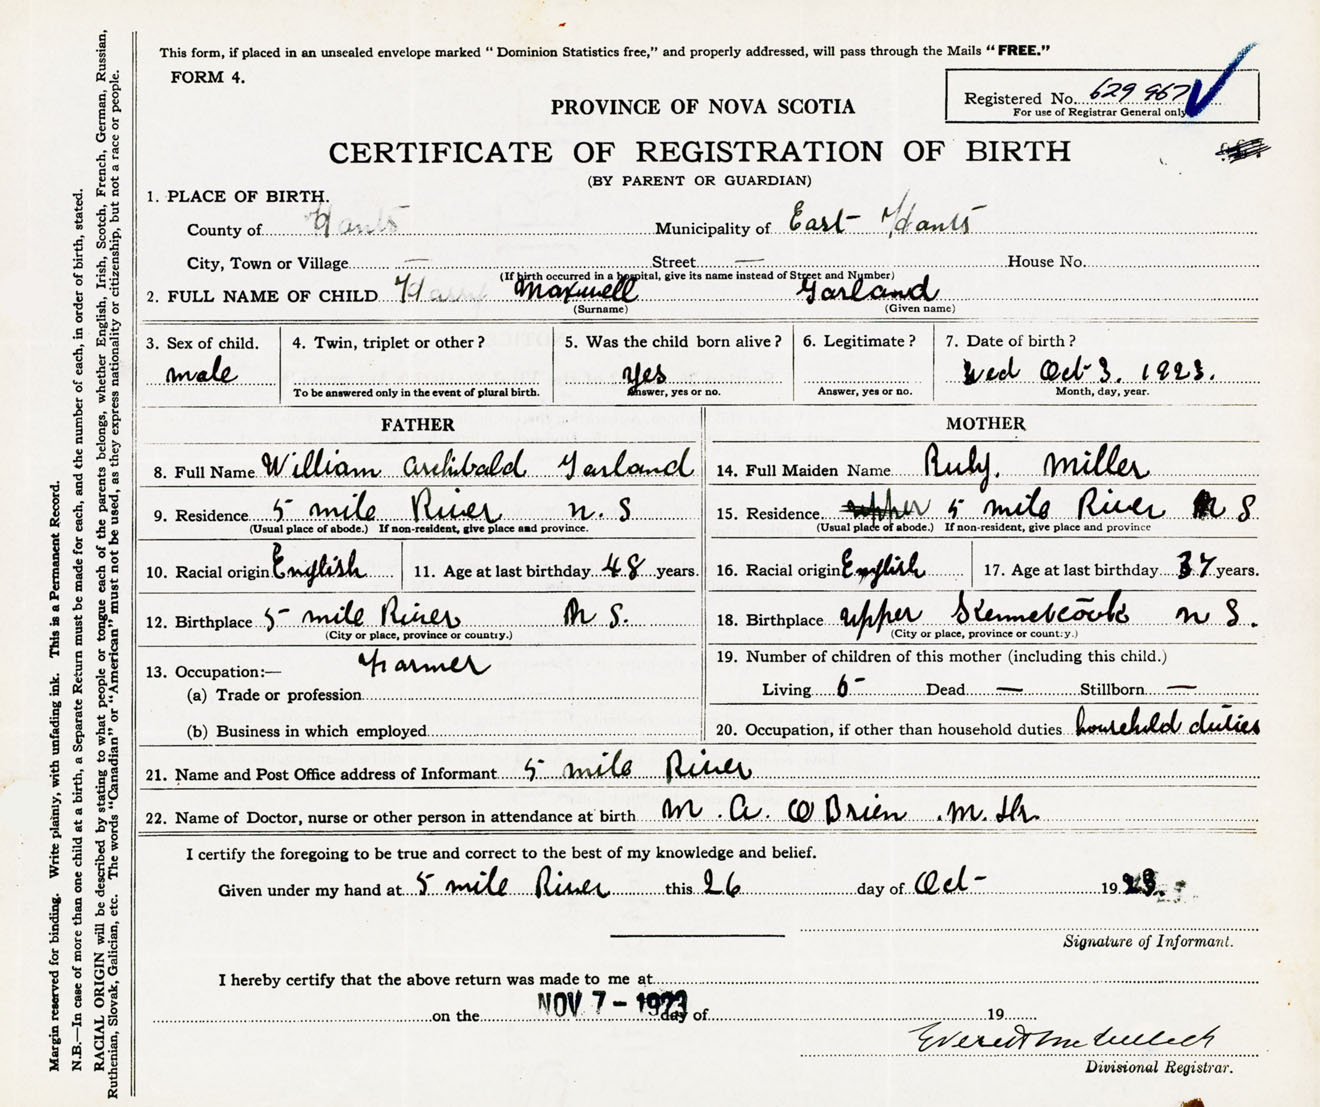 This form, if placed in an unsealed envelope marked "Dominion Statistics free," and properly addressed, will pass through the Mails "FREE."
FORM 4.
Registered No. 629 967
For use of Registrar General only
PROVINCE OF NOVA SCOTIA
CERTIFICATE OF REGISTRATION OF BIRTH
(BY PARENT OR GUARDIAN)
1. PLACE OF BIRTH.
County of Hants Municipality of East Hants
City, Town or Village — Street — House No.
(If birth occurred in a hospital, give its name instead of Street and Number)
2. FULL NAME OF CHILD Maxwell Garland
(Surname) (Given name)
3. Sex of child. 4. Twin, triplet or other? 5. Was the child born alive? 6. Legitimate? 7. Date of birth?
male yes Wed Oct 3. 1923.
To be answered only in the event of plural birth. Answer, yes or no. Answer, yes or no. Month, day, year.
FATHER
8. Full Name William Archibald Garland
9. Residence 5 mile River N. S
(Usual place of abode.) If non-resident, give place and province.
10. Racial origin English 11. Age at last birthday 48 years.
12. Birthplace 5 mile River N S.
(City or place, province or country.)
13. Occupation:— Farmer
(a) Trade or profession
(b) Business in which employed
MOTHER
14. Full Maiden Name Ruby. Miller
15. Residence upper 5 mile River N S
(Usual place of abode.) If non-resident, give place and province
16. Racial origin English 17. Age at last birthday 37 years.
18. Birthplace upper Kennetcook N S.
(City or place, province or country.)
19. Number of children of this mother (including this child.)
Living Dead — Stillborn —
20. Occupation, if other than household duties household duties
21. Name and Post Office address of Informant 5 mile River
22. Name of Doctor, nurse or other person in attendance at birth M. A. O Brien . M. Dr.
I certify the foregoing to be true and correct to the best of my knowledge and belief.
Given under my hand at 5 mile River this 26 day of Oct 1923.
Signature of Informant.
I hereby certify that the above return was made to me at
on the NOV 7 - 1923 day of 19
Everett McCulloch
Divisional Registrar.
Margin reserved for binding. Write plainly, with unfading ink. This is a Permanent Record.
N.B.—In case of more than one child at a birth, a Separate Return must be made for each, and the number of each, in order of birth, stated.
RACIAL ORIGIN will be described by stating to what people or tongue each of the parents belongs, whether English, Irish, Scotch, French, German, Russian,
Ruthenian, Slovak, Galician, etc. The words "Canadian" or "American" must not be used, as they express nationality or citizenship, but not a race or people.